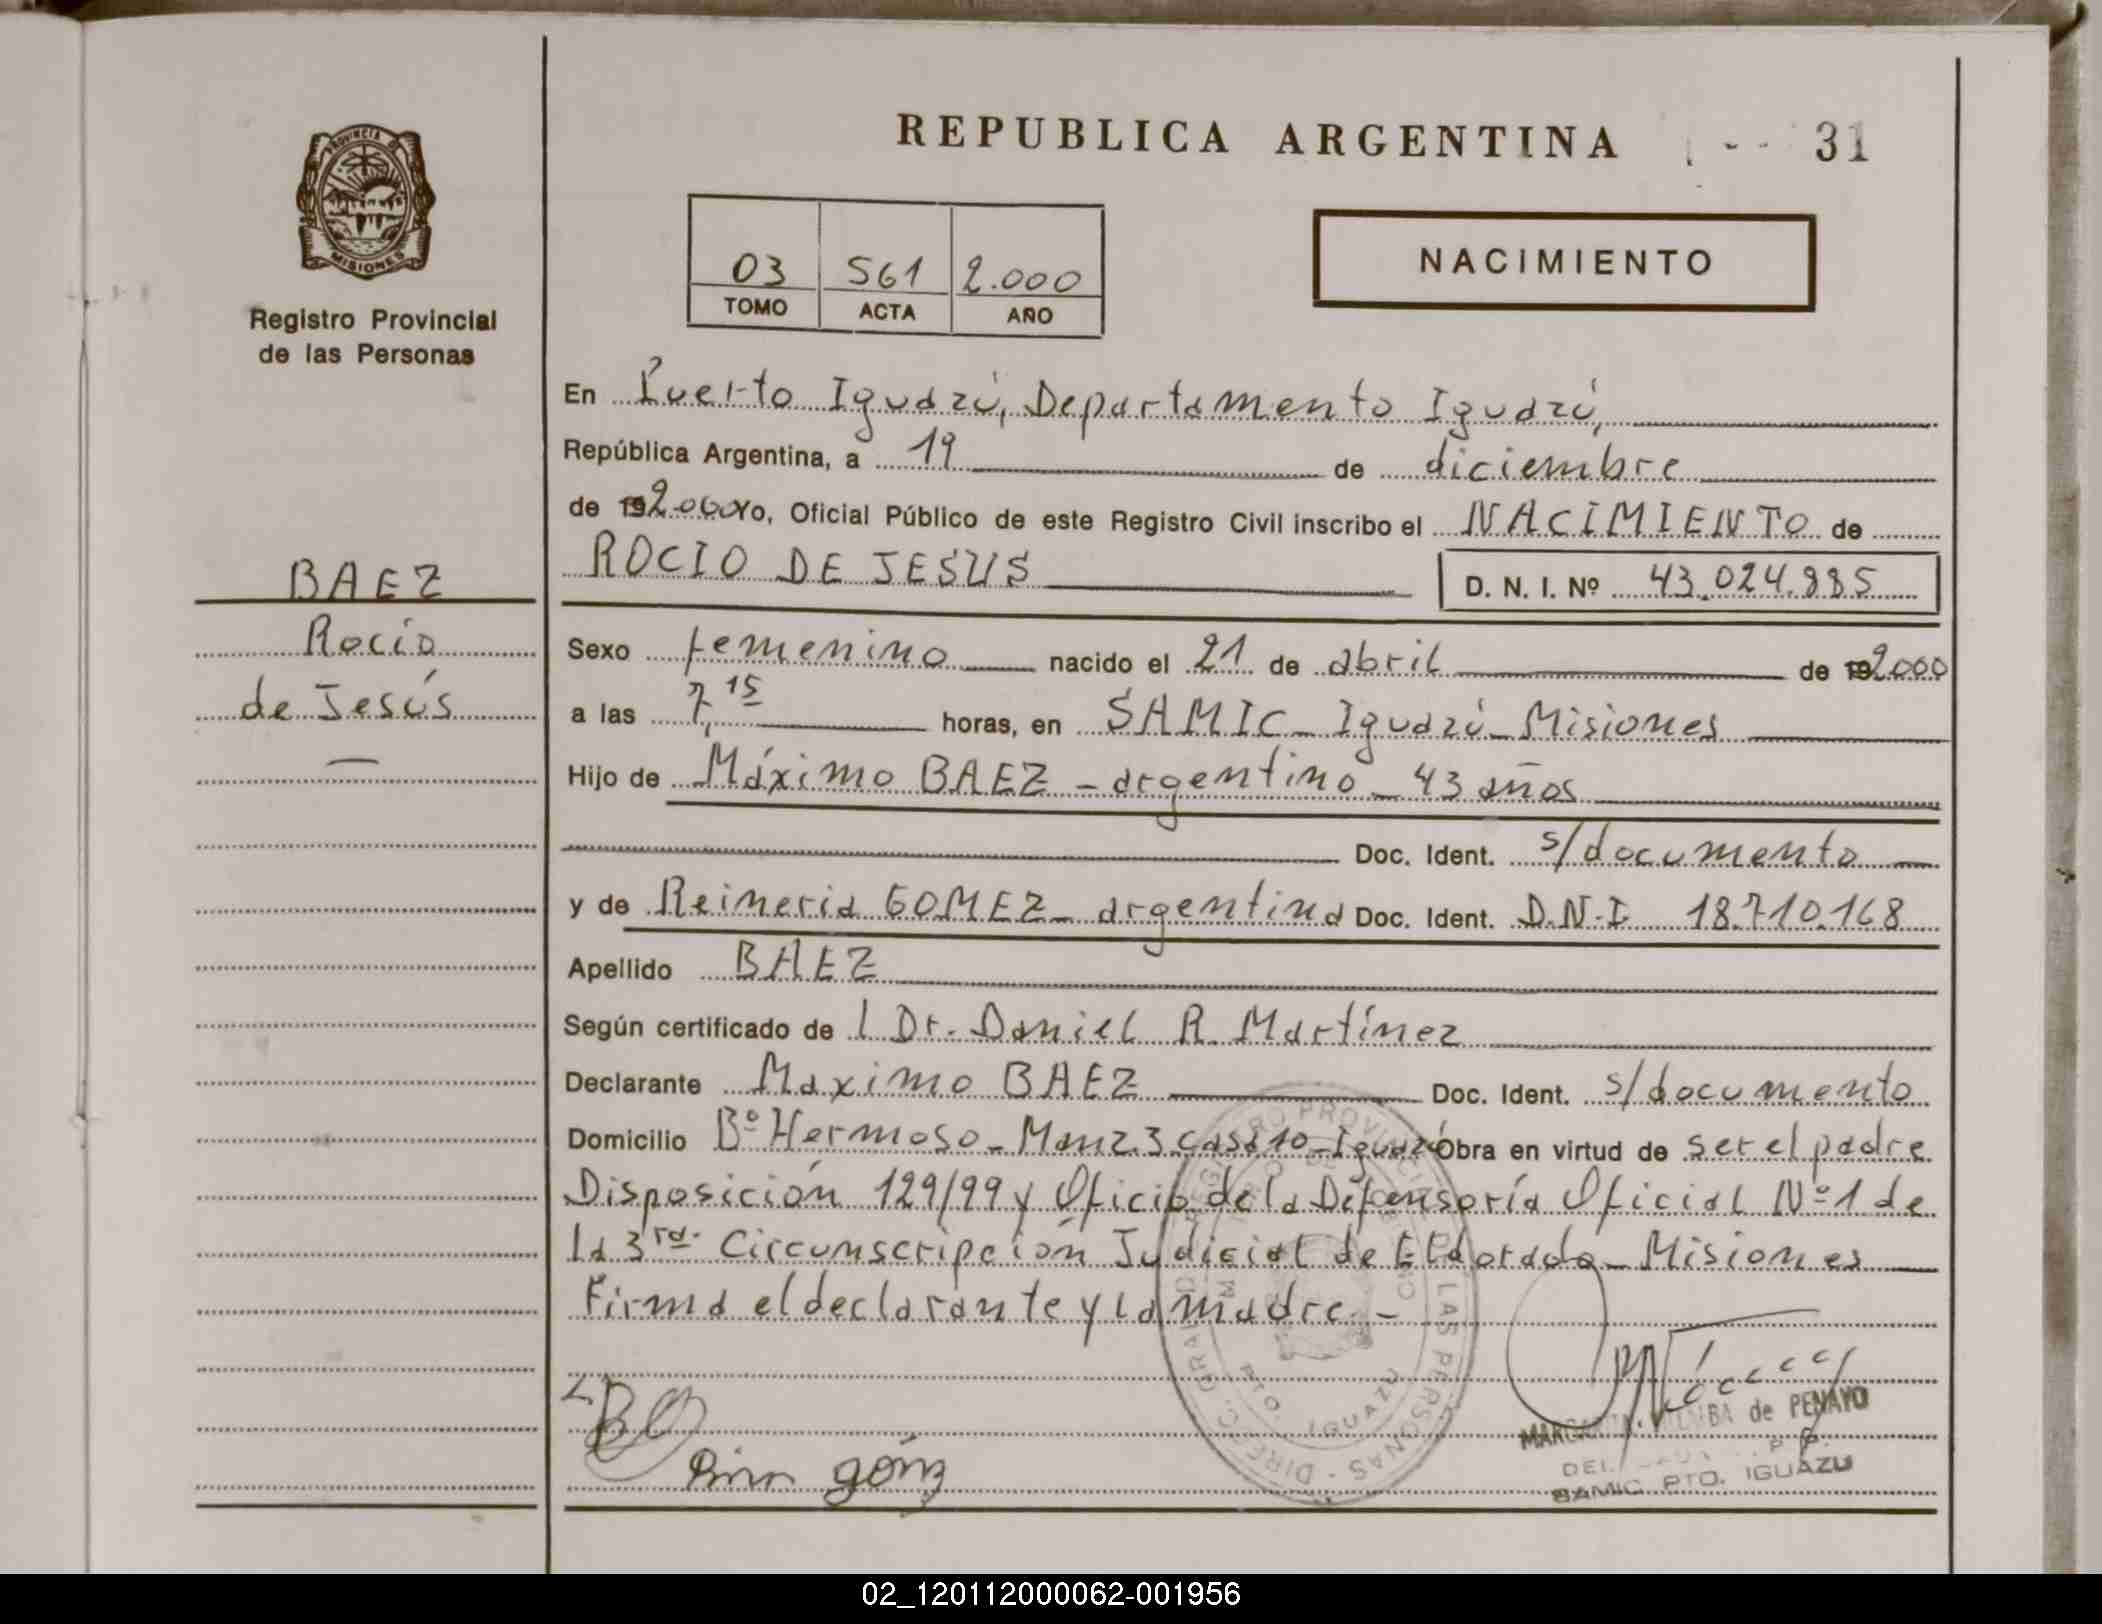 REPUBLICA ARGENTINA
31
PROVINCIA DE
MISIONES
Registro Provincial
de las Personas
03 561 2.000
TOMO ACTA AÑO
NACIMIENTO
En Puerto Iguazú, Departamento Iguazú,
República Argentina, a 19 de diciembre
de 192.000 Yo, Oficial Público de este Registro Civil inscribo el NACIMIENTO de
ROCIO DE JESUS D. N. I. Nº 43.024.885
BAEZ
Rocío
de Jesús
Sexo femenino nacido el 21 de abril de 192000
a las 7,15 horas, en SAMIC - Iguazú - Misiones
Hijo de Máximo BAEZ - argentino - 43 años
Doc. Ident. s/documento
y de Reineria GOMEZ - argentina Doc. Ident. D.N.I 18.710.168
Apellido BAEZ
Según certificado de l Dr. Daniel R. Martínez
Declarante Maximo BAEZ Doc. Ident. s/documento
Domicilio Bº Hermoso - Manz. 3 casa 10 - Iguazú Obra en virtud de ser el padre
Disposición 129/99 y Oficio de la Defensoría Oficial Nº 1 de
la 3ra. Circunscripción Judicial de Eldorado - Misiones
Firma el declarante y la madre. -
REGISTRO PROVINCIAL DE LAS PERSONAS - DIREC. GRAL.
PTO. IGUAZU
de PENAYO
SAMIC PTO. IGUAZU
02_120112000062-001956